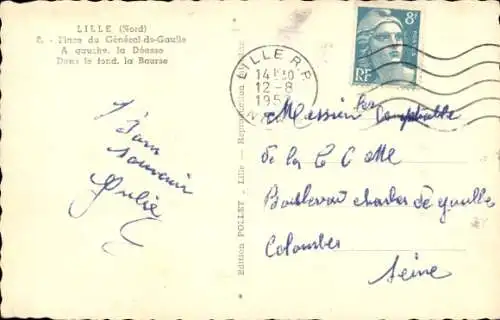 LILLE (Nord)
2. - Place du Général-de-Gaulle
A gauche, la Déesse
Dans le fond, la Bourse
Bon
souvenir
Julie
Edition POLLET - Lille - Reproduction
LILLE R.P.
12-8
8F
RF
Messieurs les Comptables
de la
Boulevard Charles de Gaulle
Colombes
Seine